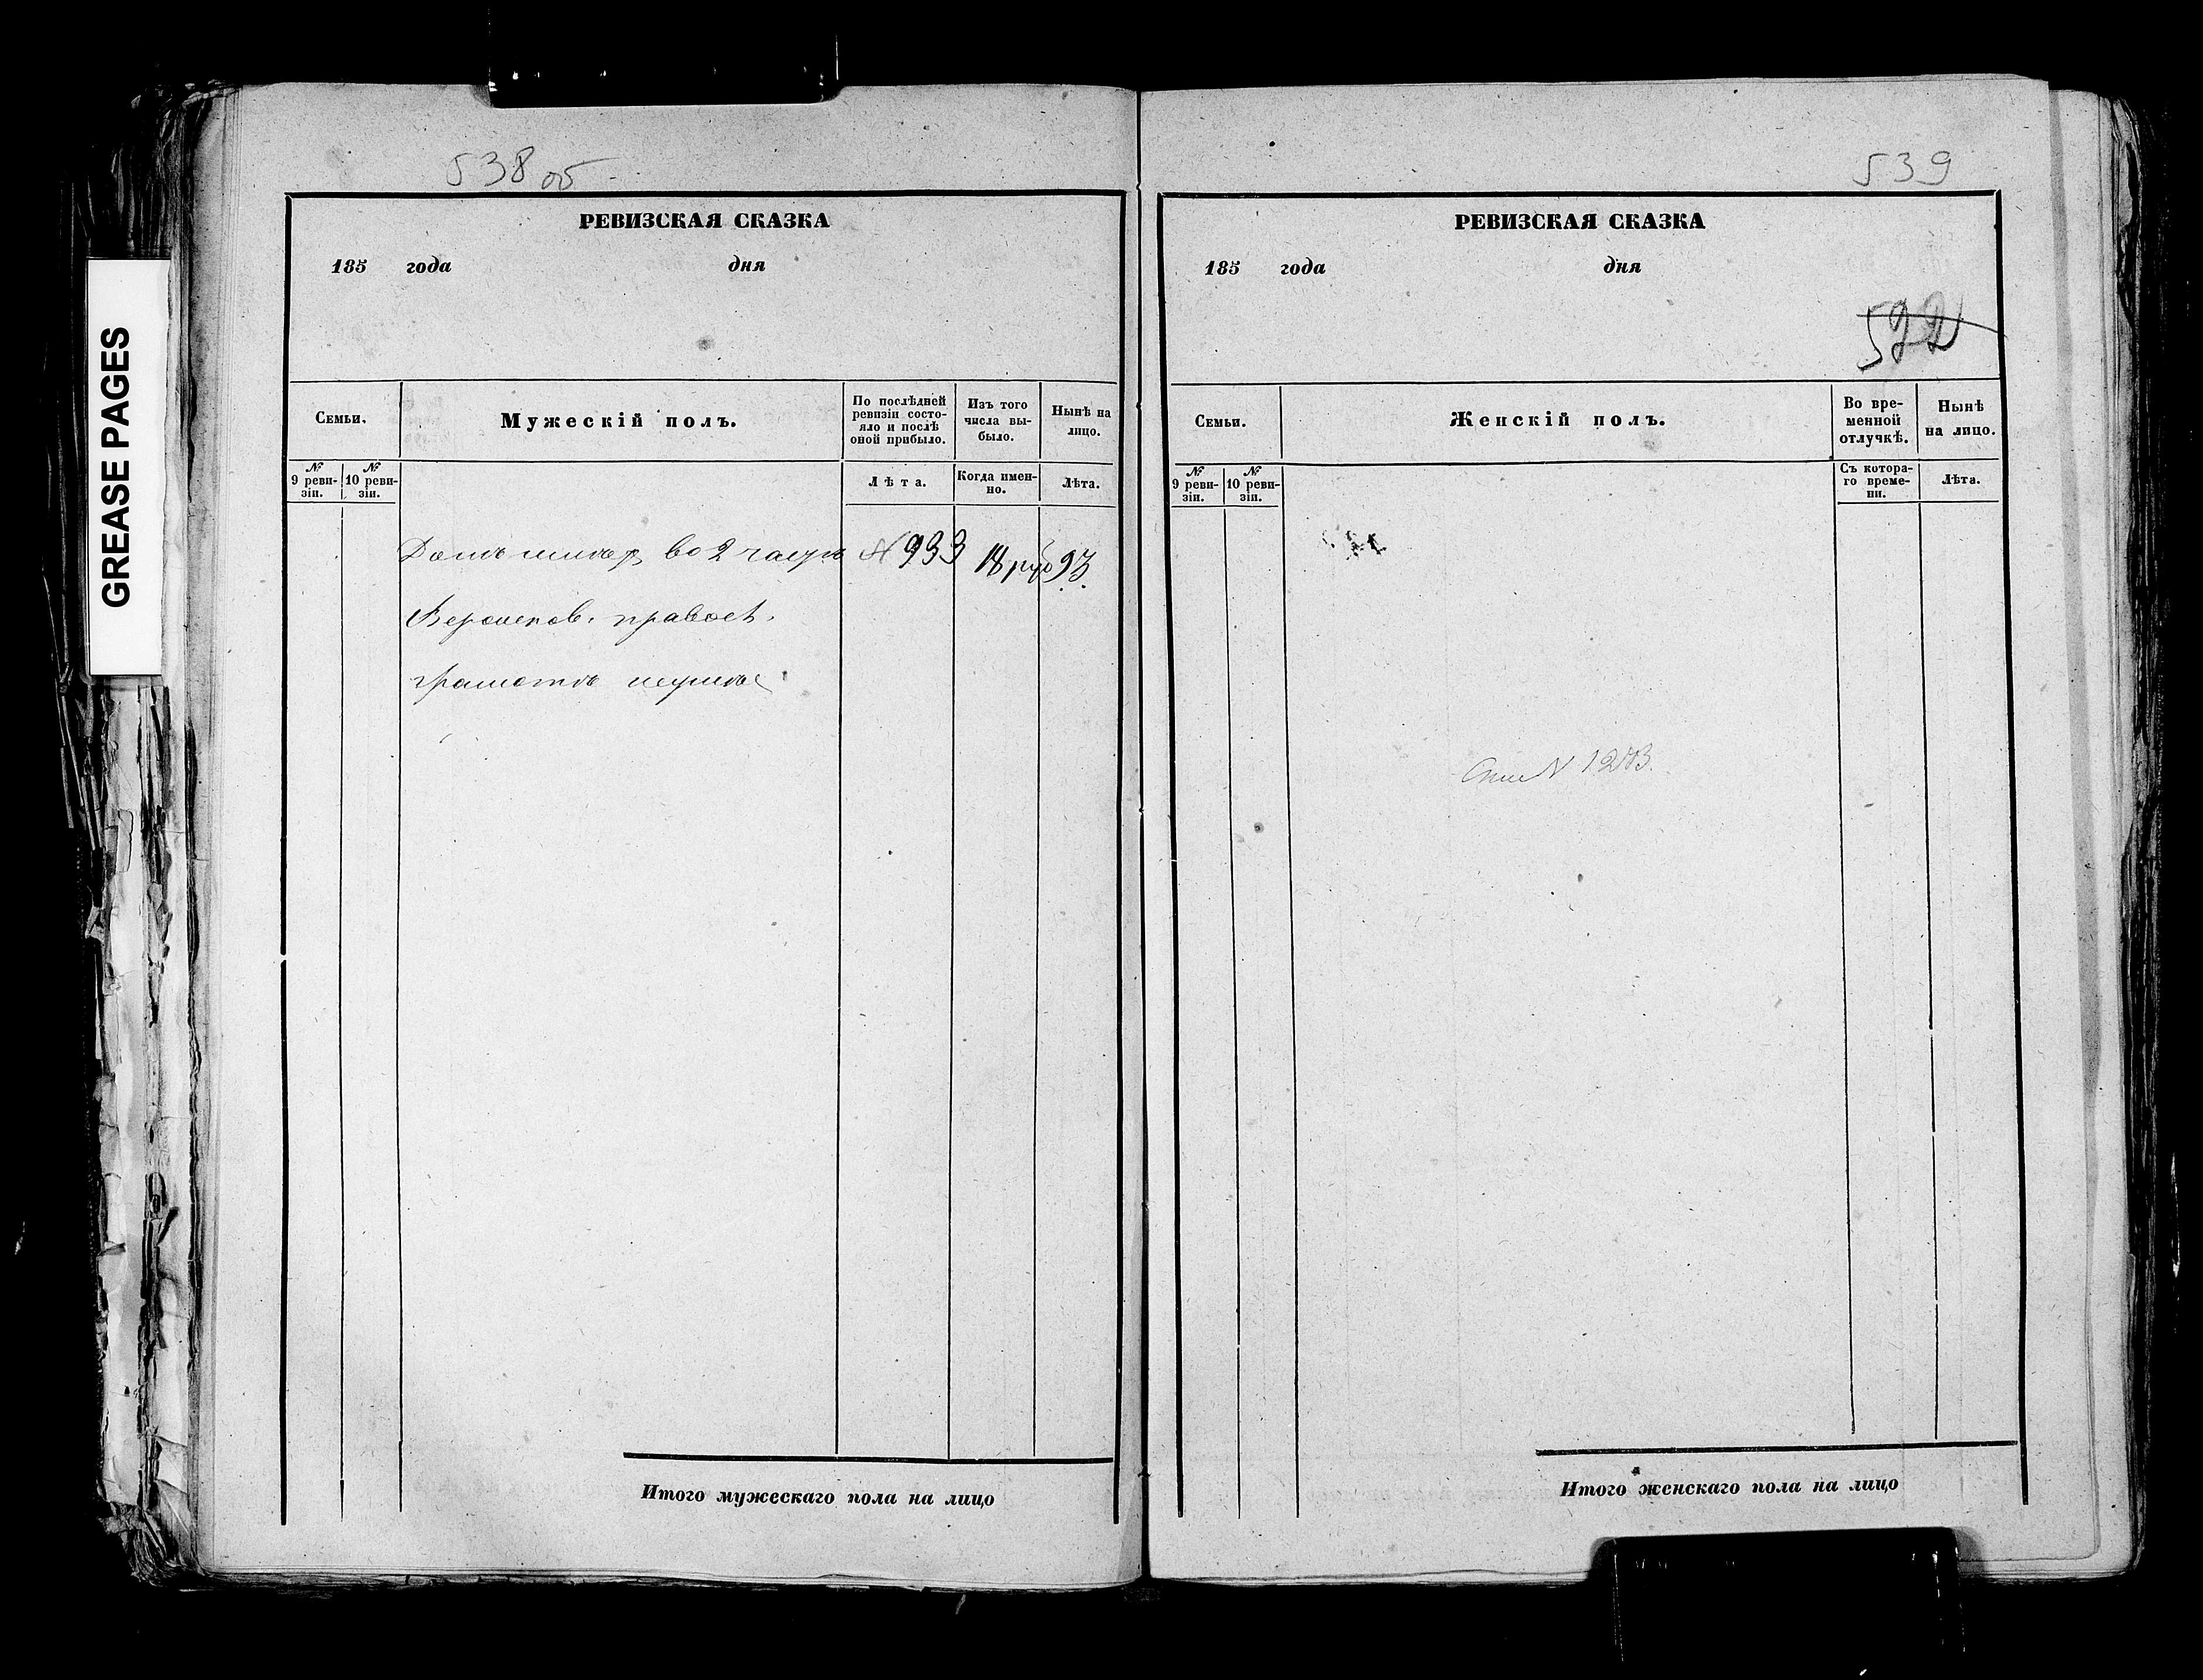 GREASE PAGES
538 об
РЕВИЗСКАЯ СКАЗКА
185 года дня
Семьи.
Мужескій полъ.
По послѣдней ревизіи состояло и послѣ оной прибыло.
Изъ того числа выбыло.
Нынѣ на лицо.
№ 9 ревизіи.
№ 10 ревизіи.
Лѣта.
Когда именно.
Лѣта.
Домъ имѣе во 2 части № 933 18 руб 93
правосл.
грамотѣ неумѣе
Итого мужескаго пола на лицо
539
РЕВИЗСКАЯ СКАЗКА
185 года дня
522
Семьи.
Женскій полъ.
Во временной отлучкѣ.
Нынѣ на лицо.
№ 9 ревизіи.
№ 10 ревизіи.
Съ котораго времени.
Лѣта.
Итого женскаго пола на лицо